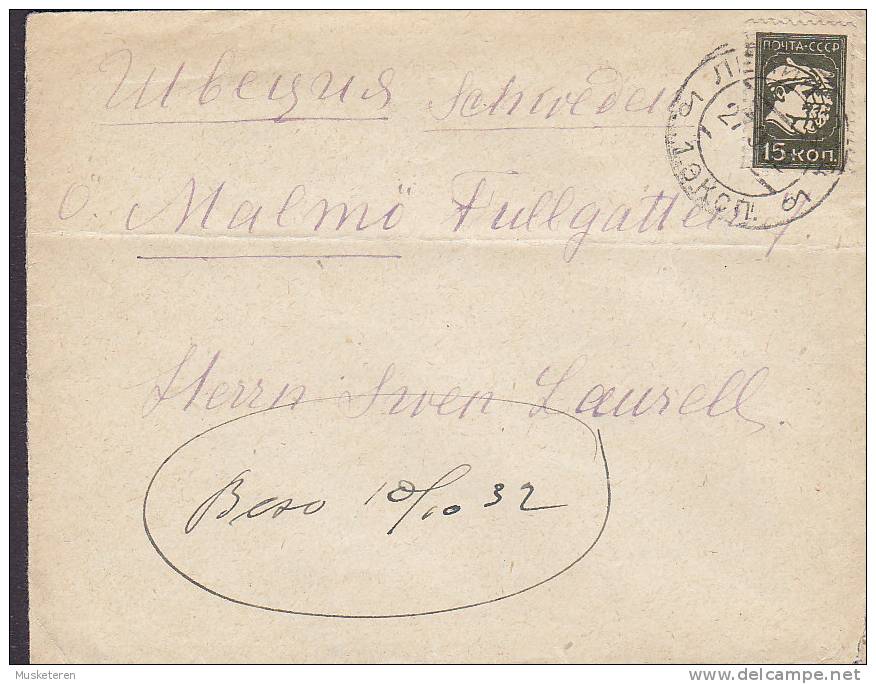 ПОЧТА-СССР
15 КОП.
Швеция Schweden
Ö. Malmö Fullgatten
Herrn Swen Laurell.
10/10 32
ЭКСП.
Musketeren
delcampe.net